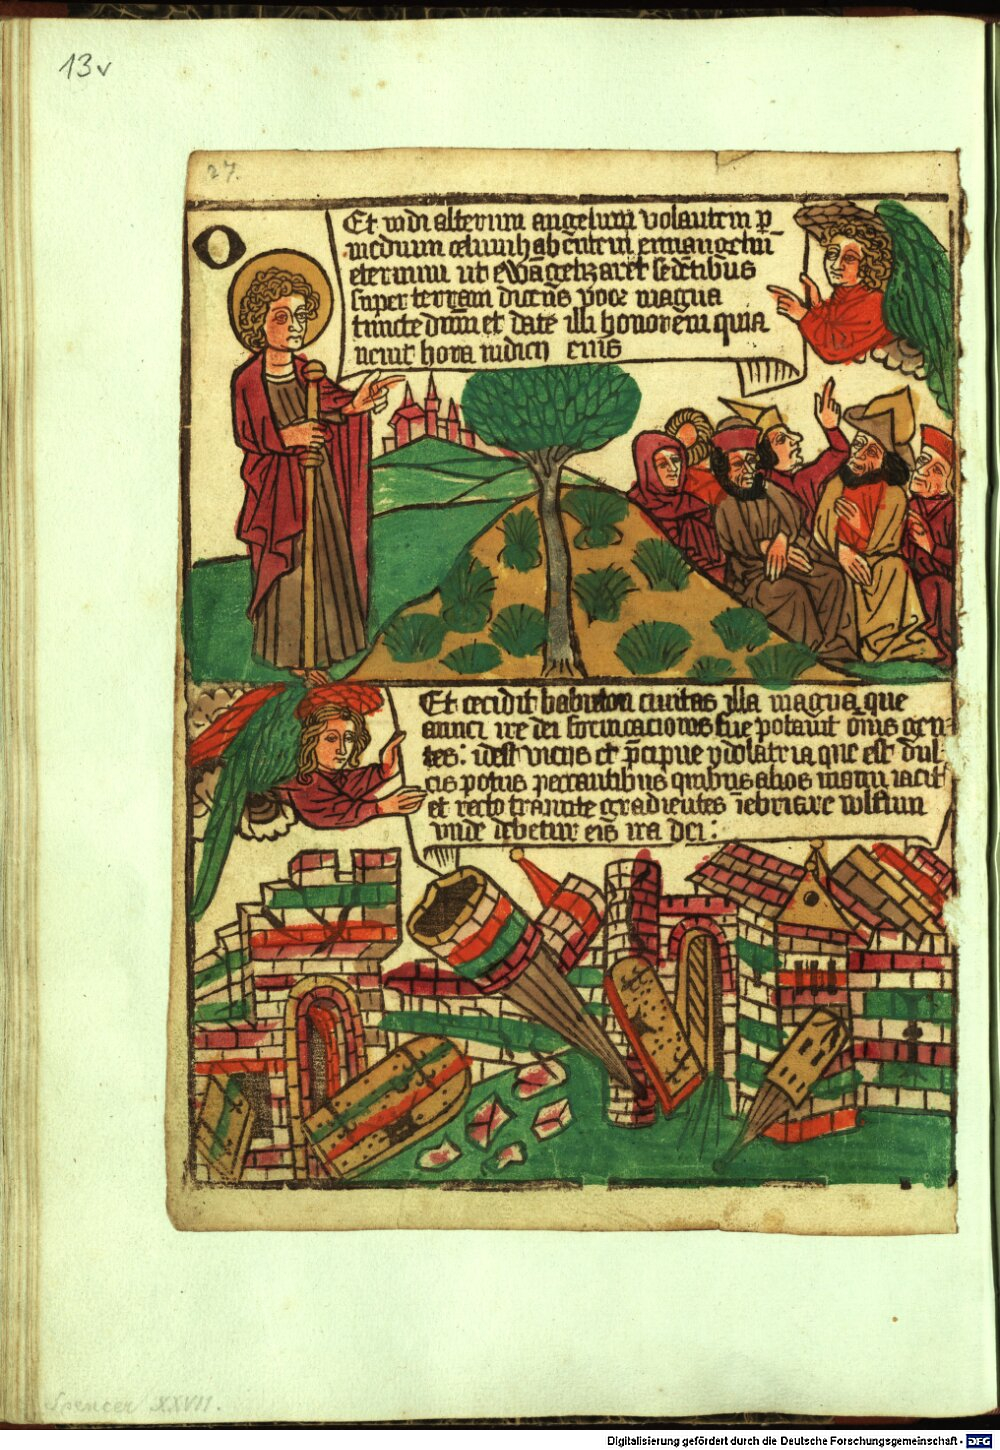 13v
27.
O
Et vidi alterum angelum volantem p
medium celum habentem ewangeliū
eternum ut ewāgelizaret sedētibus
super terram dicens voce magna
timete dnm et date illi honorem quia
venit hora iudicii eius
Et cecidit babilon civitas illa magna que
a vino ire dei fornicacionis sue potavit omīs gen-
tes: id est vicijs et p̄cipue ydolatria que est dul-
cis potus peccantibus quibus alios
et recto tramite gradientes īebriare
unde debetur eis ira dei:
Spencer XXVII.
Digitalisierung gefördert durch die Deutsche Forschungsgemeinschaft - DFG